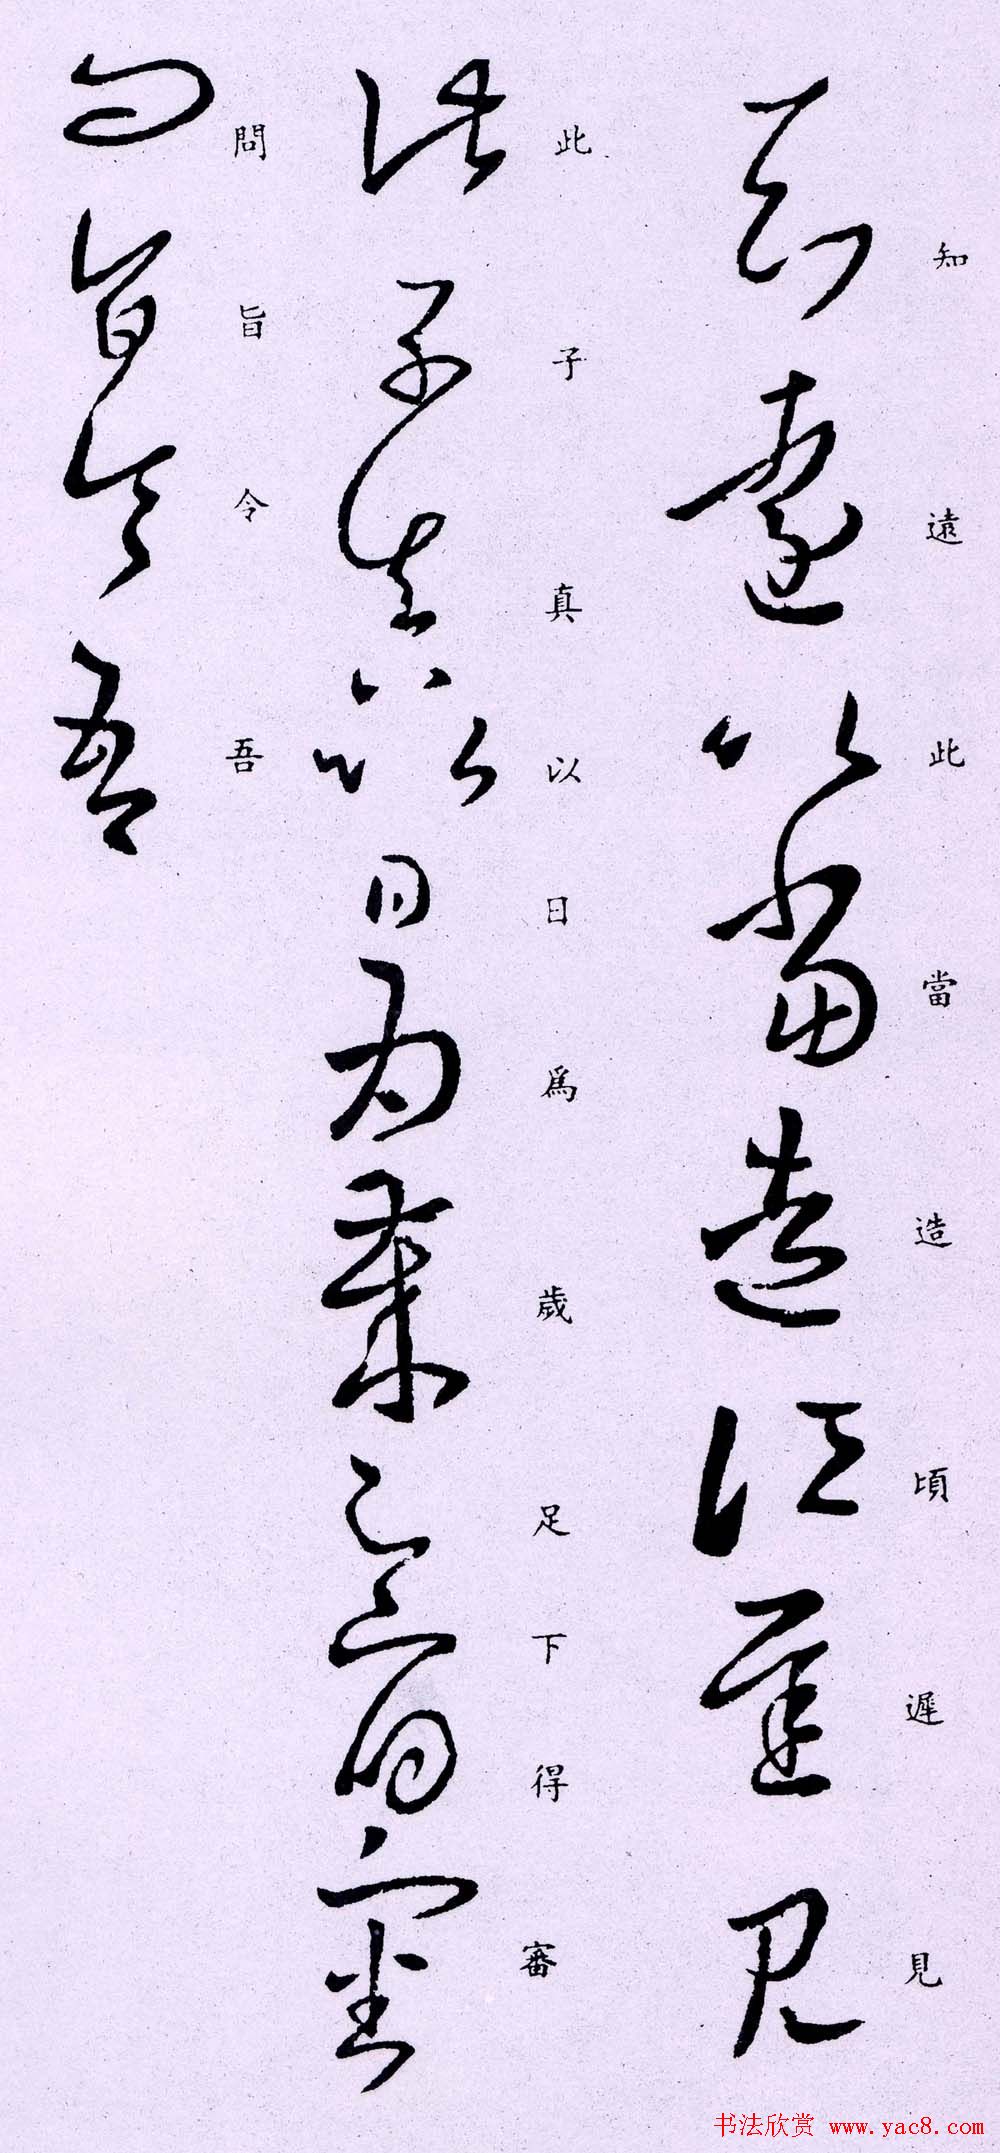 知遠此當造頃遲見
此子真以日為歲足下得審
問旨令吾
书法欣赏 www.yac8.com